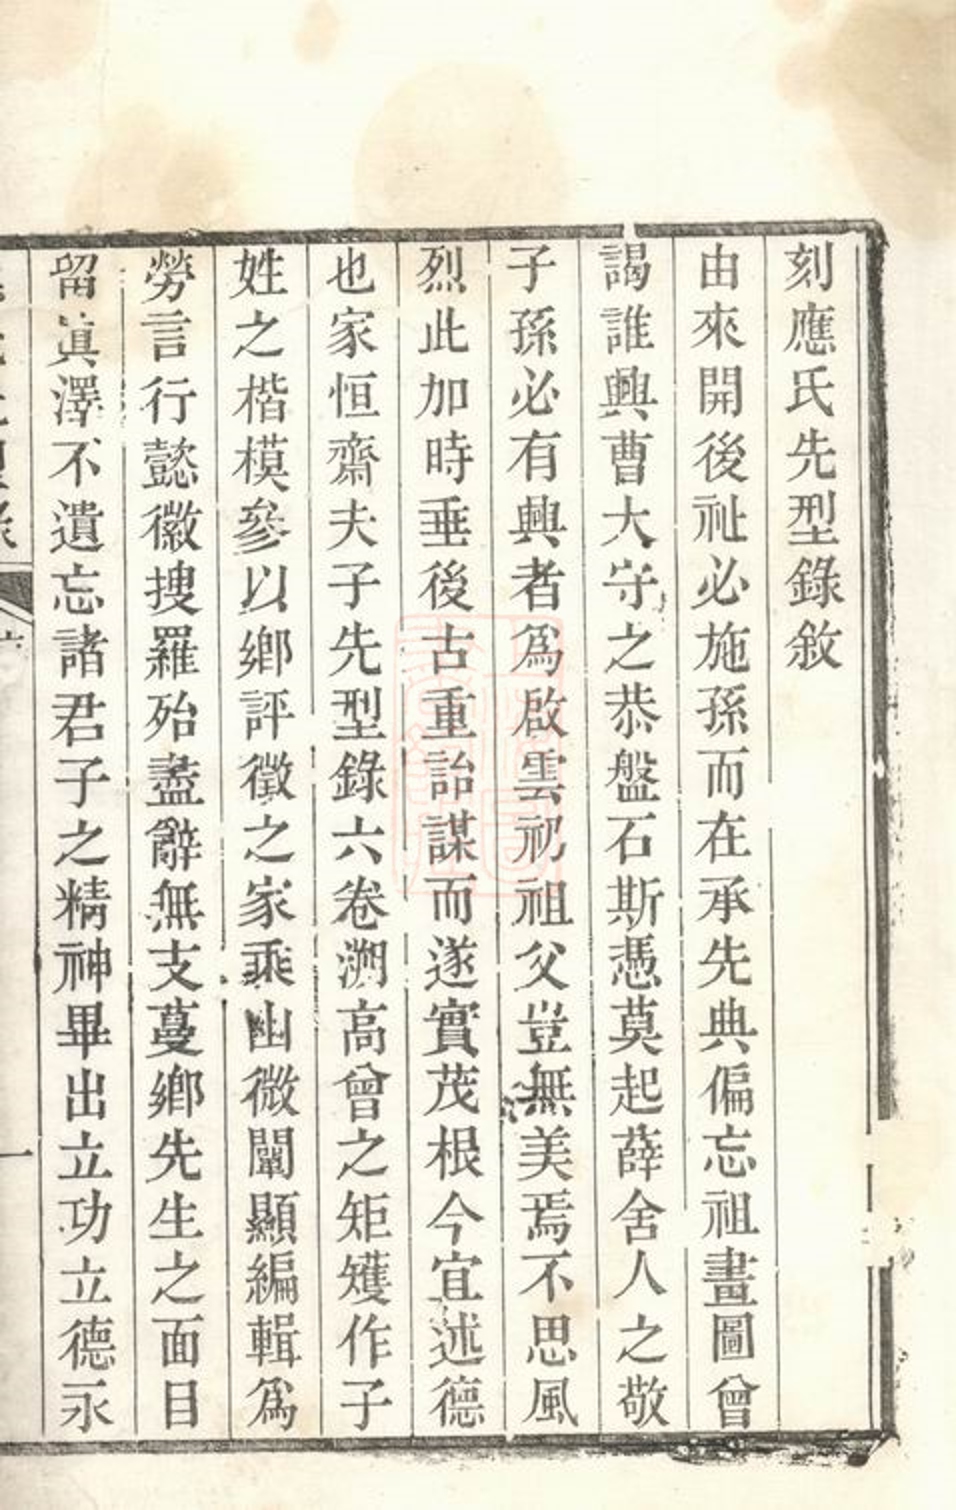 刻應氏先型錄敘
由來開後祉必施孫而在承先典偏忘祖畫圖曾
謁誰興曹大守之恭盤石斯憑莫起薛舍人之敬
子孫必有興者為啟雲礽祖父豈無美焉不思風
烈此加時垂後古重詒謀而遂實茂根今宜述德
也家恒齋夫子先型錄六卷溯高曾之矩矱作子
姓之楷模參以鄉評徵之家乘幽微闡顯編輯為
勞言行懿徽搜羅殆盡辭無支蔓鄉先生之面目
留眞澤不遺忘諸君子之精神畢出立功立德永
一